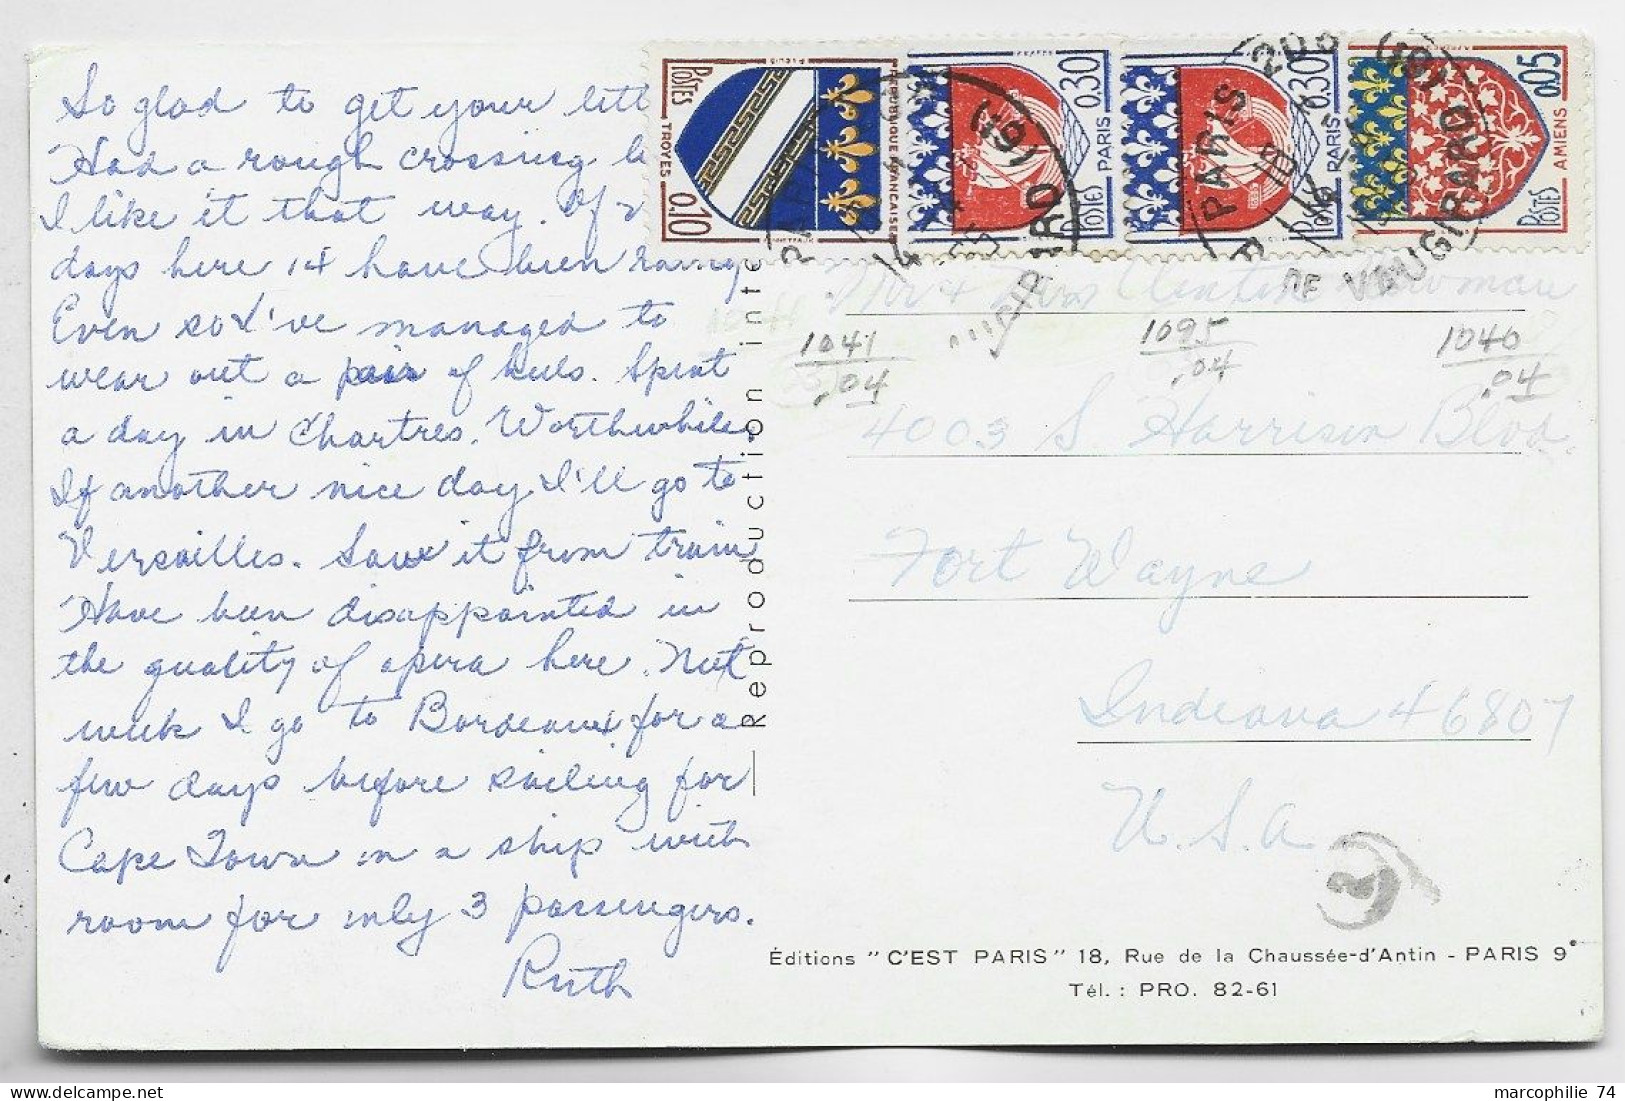 So glad to get your
Had a rough crossing
I like it that way. Of
days here 14 have been
Even so I've managed to
wear out a pair of heels. Spent
a day in Chartres. Worthwhile.
If another nice day I'll go to
Versailles. Saw it from train
Have been disappointed in
the quality of opera here. Next
week I go to Bordeaux for a
few days before sailing for
Cape Town on a ship with
room for only 3 passengers.
Ruth
POSTES TROYES 0.10 REPUBLIQUE FRANÇAISE
0.30 PARIS POSTES
0.30 PARIS POSTES
0.05 AMIENS POSTES
PARIS
DE VAUGIRARD
Reproduction inte
Mr & Mrs Clinton
1041
.04
1095
.04
1040
.04
4003 S Harrison Blvd.
Fort Wayne
Indiana 46807
U.S.A
2
Éditions "C'EST PARIS" 18, Rue de la Chaussée-d'Antin - PARIS 9e
Tél. : PRO. 82-61
marcophilie 74